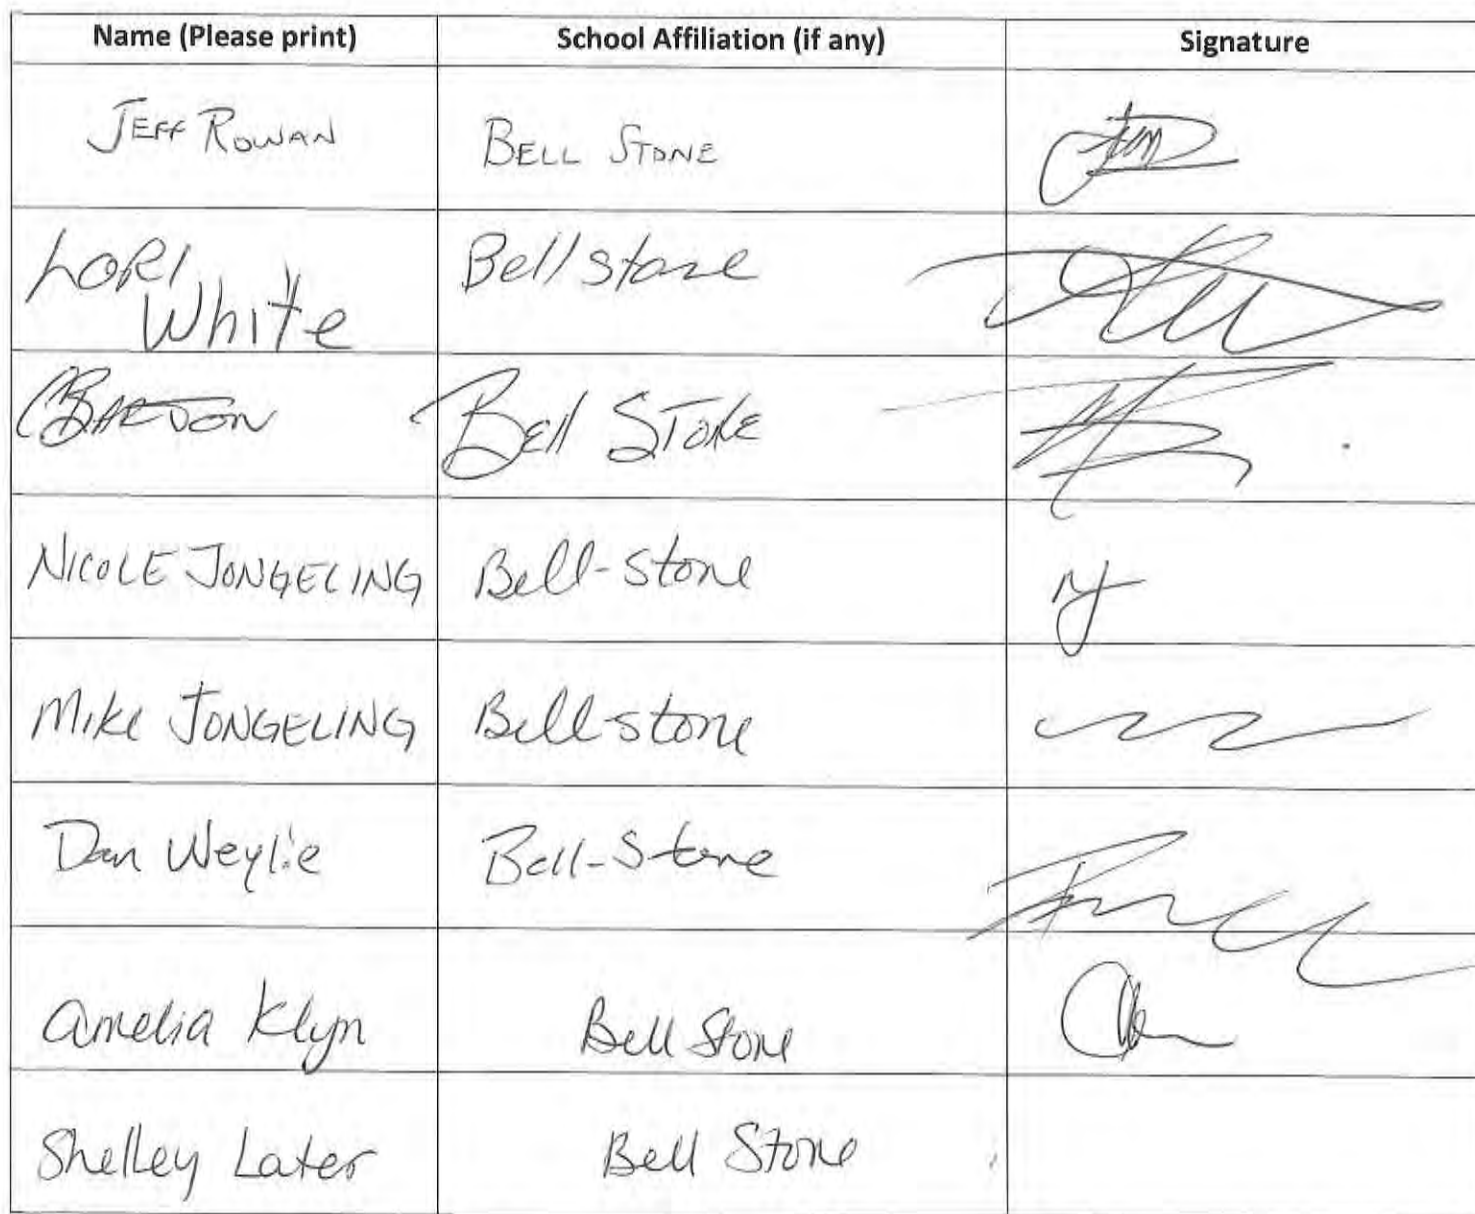 Name (Please print) School Affiliation (if any) Signature
JEFF ROWAN BELL STONE
LORI Bellstone
White
BARTON Bell STONE
NICOLE JONGELING Bell-Stone
Mike JONGELING Bellstone
Dan Weylie Bell-Stone
Amelia Klyn Bell Stone
Shelley Later Bell Stone